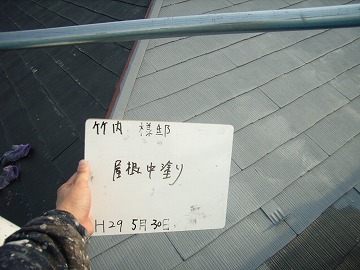 竹内 様邸
屋根中塗り
H29 5月30日